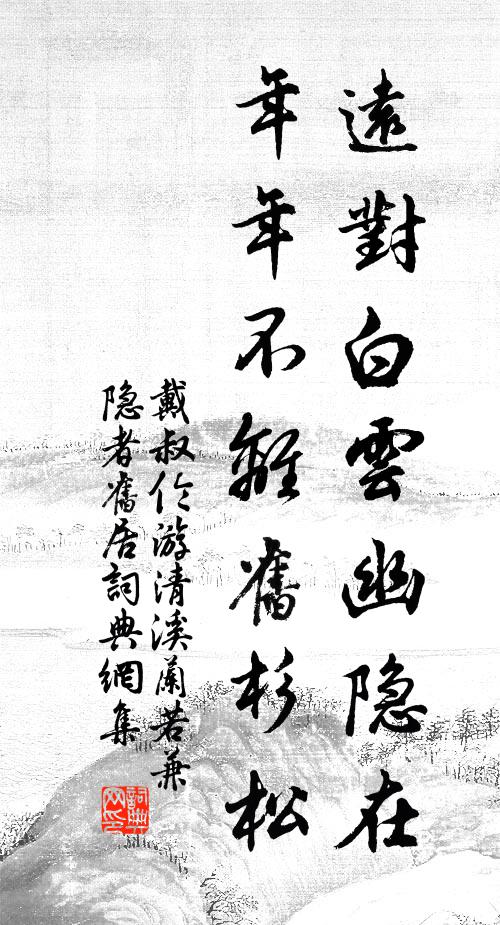 遠對白雲幽隐在
年年不離舊杉松
戴叔伦游清溪蘭若兼
隐者舊居詞典網集